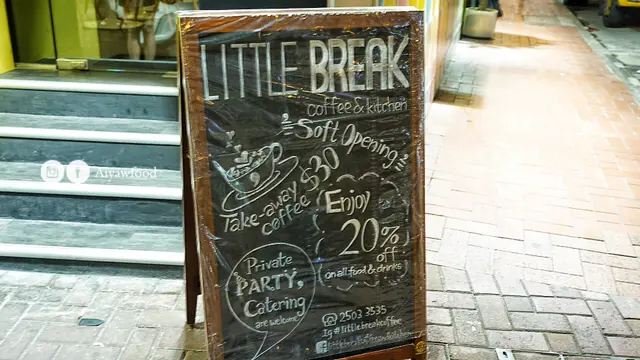 LITTLE BREAK
coffee & kitchen
Soft Opening
Take-away
coffee $30
Enjoy
20%
off
on all food & drinks
Private
PARTY,
Catering
are welcome!
2503 3535
Ig#littlebreakcoffee
Aiyawfood